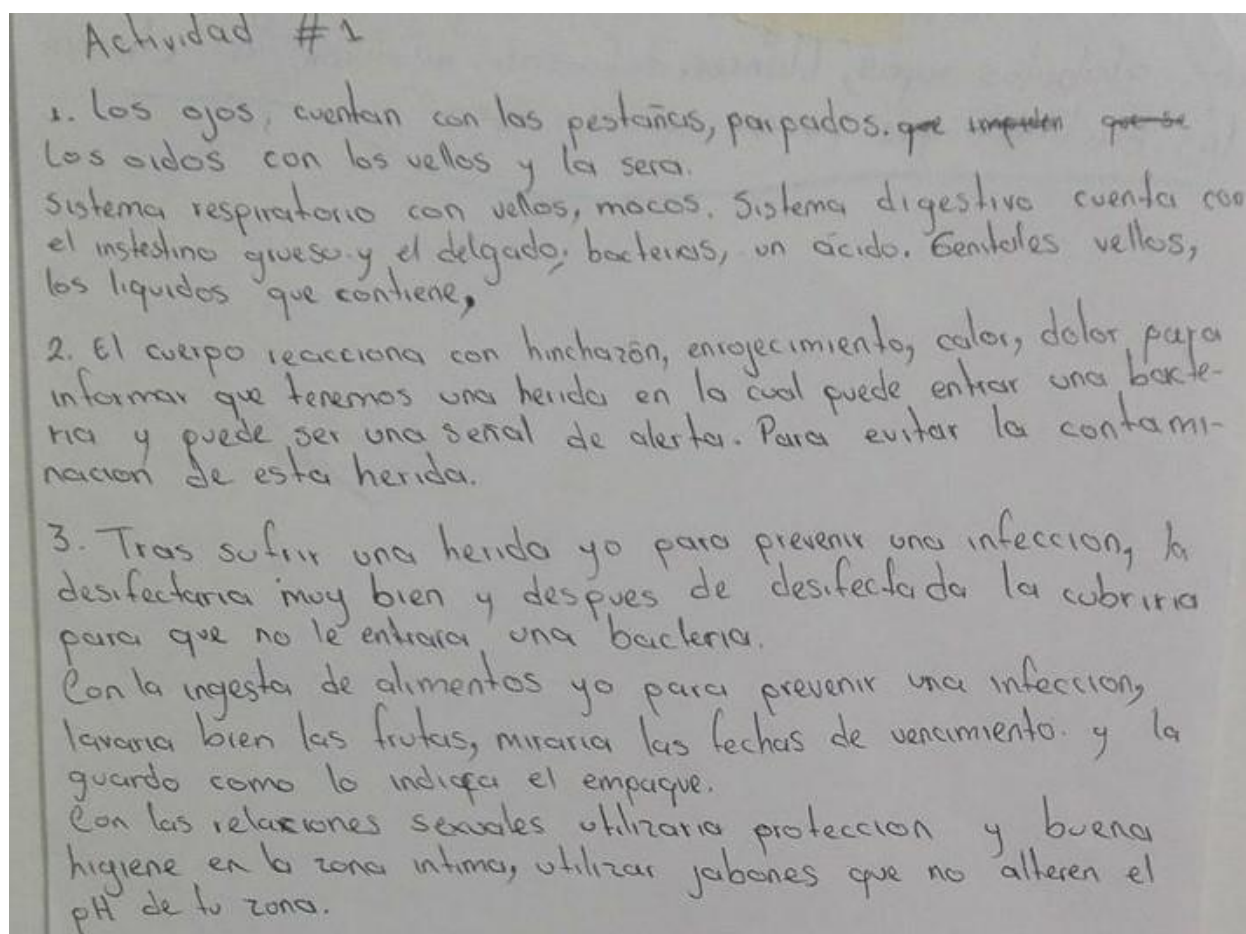 Actividad #1
1. Los ojos, cuentan con las pestañas, parpados. que impiden que se
Los oidos con los vellos y la sera.
Sistema respiratorio con vellos, mocos. Sistema digestivo cuenta con
el instestino grueso y el delgado; bacterias, un ácido. Genitales vellos,
los liquidos que contiene,
2. El cuerpo reacciona con hinchazón, enrojecimiento, calor, dolor para
informar que tenemos una herida en la cual puede entrar una bacte-
ria y puede ser una señal de alerta. Para evitar la contami-
nacion de esta herida.
3. Tras sufrir una herida yo para prevenir una infeccion, la
desifectaria muy bien y despues de desifectada la cubriria
para que no le entrara una bacteria.
Con la ingesta de alimentos yo para prevenir una infeccion,
lavaria bien las frutas, miraria las fechas de vencimiento. y la
guardo como lo indica el empaque.
Con las relaciones sexuales utilizaria proteccion y buena
higiene en la zona intima, utilizar jabones que no alteren el
pH de tu zona.